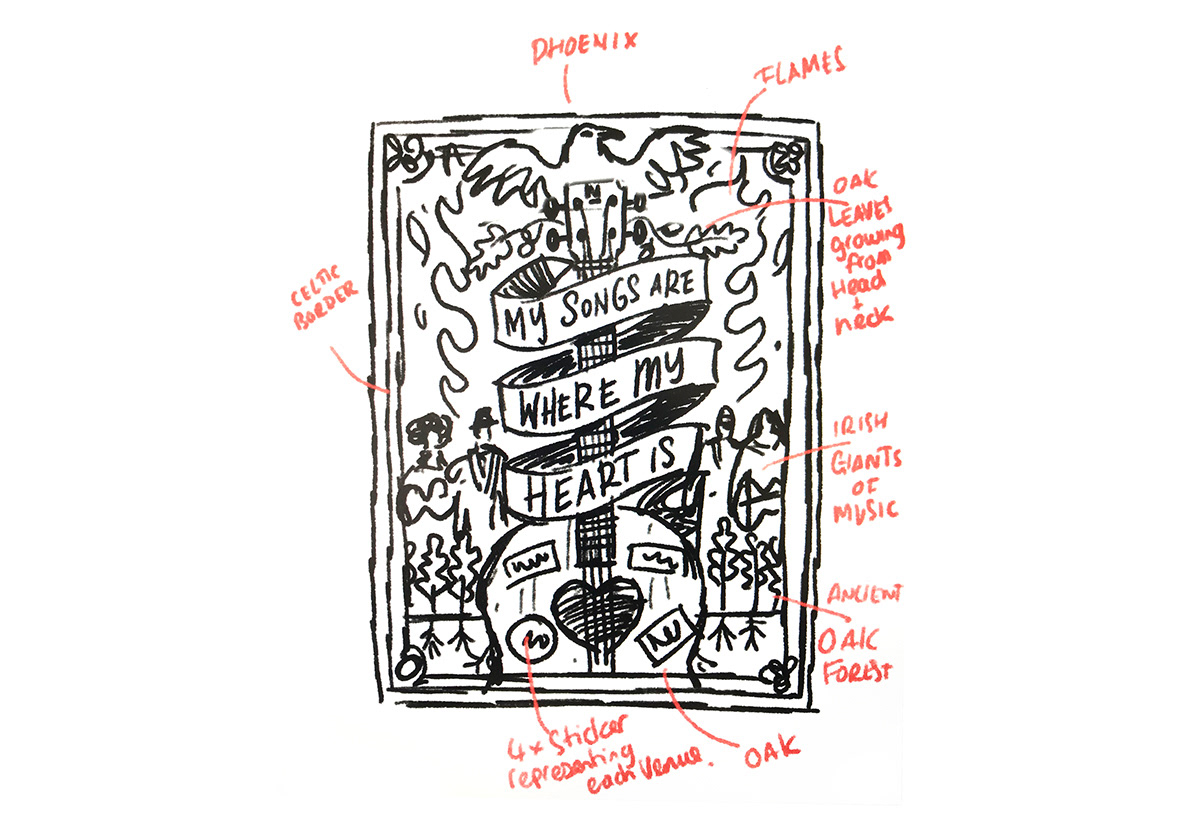 PHOENIX
FLAMES
OAK
LEAVES
growing
from
Head
+
neck
CELTIC
BORDER
N
MY SONGS ARE
WHERE MY
HEART IS
IRISH
GIANTS
OF
MUSIC
ANCIENT
OAK
FOREST
4x Sticker
representing
each Venue.
OAK